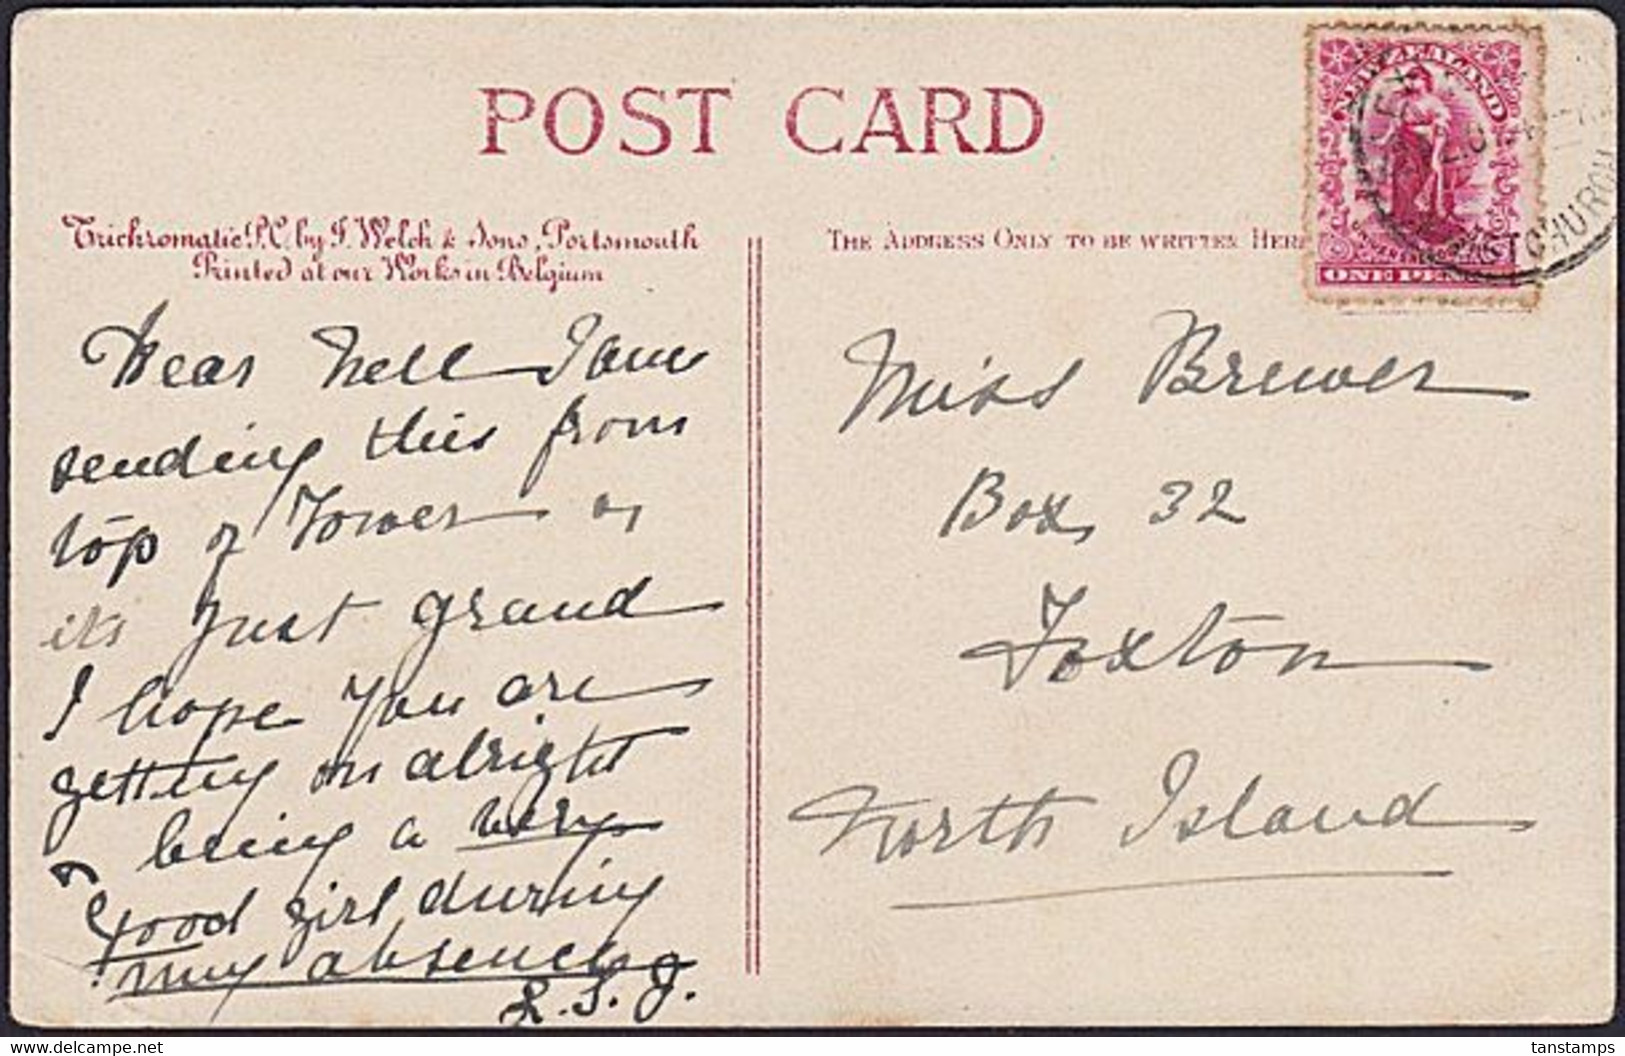 POST CARD
Trichromatic P.C. by J. Welch & Sons, Portsmouth
Printed at our Works in Belgium
THE ADDRESS ONLY TO BE WRITTEN HERE
NEW ZEALAND
ONE PENNY
CHURCH
Dear Nell I am
sending this from
top of Tower &
its just grand
I hope you are
getting on alright
& being a very
good girl during
my absence
L. S. J.
Miss Brewer
Box 32
Foxton
North Island
tanstamps